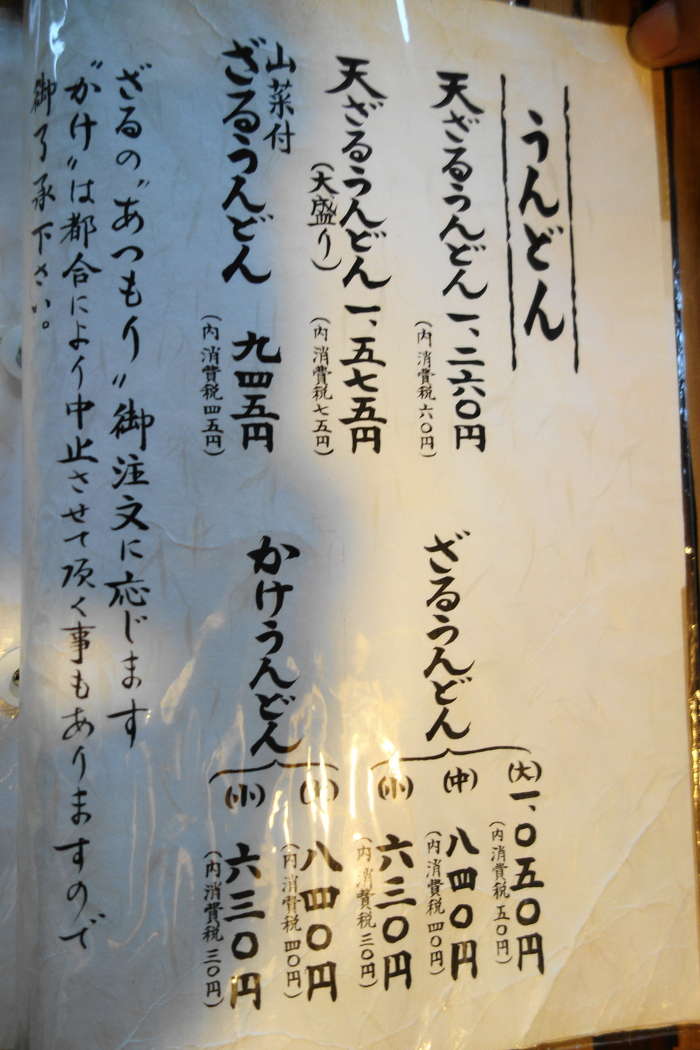 うんどん
天ざるうんどん 一、二六〇円
(内消費税六〇円)
天ざるうんどん 一、五七五円
(大盛り)
(内消費税七五円)
山菜付
ざるうんどん 九四五円
(内消費税四五円)
ざるうんどん
(大) 一、〇五〇円
(内消費税五〇円)
(中) 八四〇円
(内消費税四〇円)
(小) 六三〇円
(内消費税三〇円)
かけうんどん
八四〇円
(内消費税四〇円)
(小) 六三〇円
(内消費税三〇円)
ざるの〝あつもり〟御注文に応じます
〝かけ〟は都合により中止させて頂く事もありますので
御了承下さい。